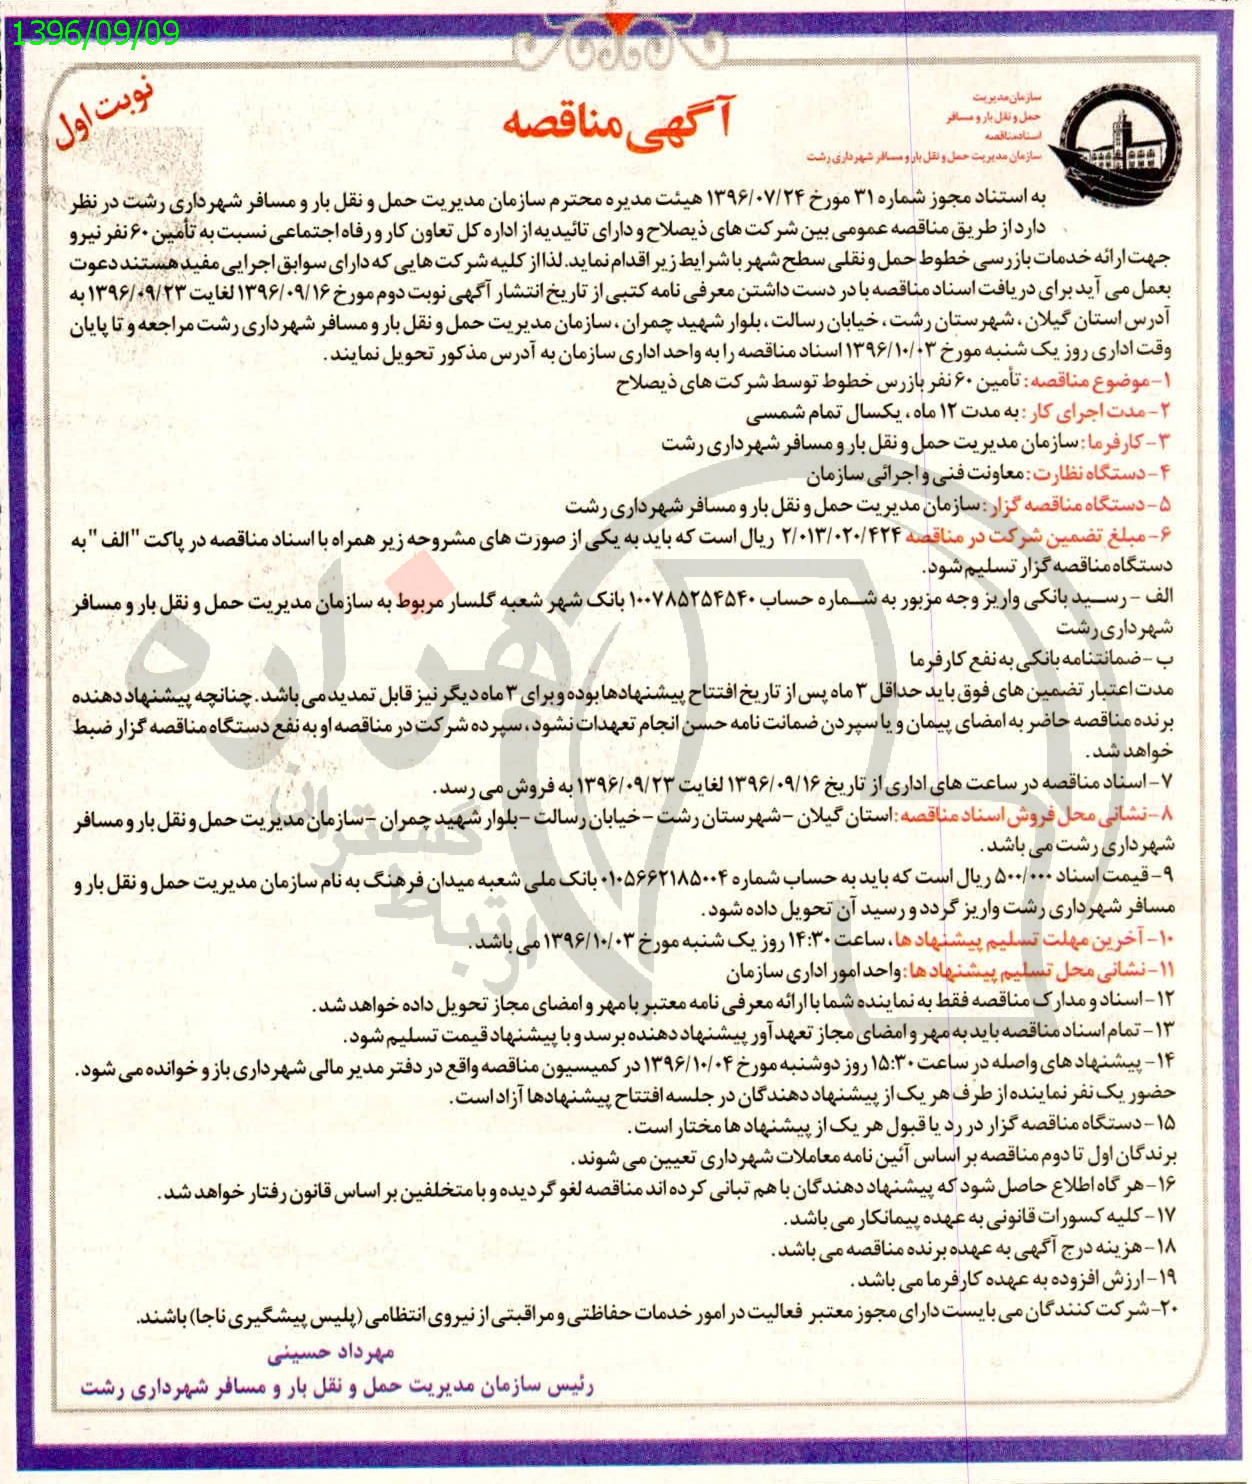 1396/09/09
نوبت اول
سازمان مدیریت
حمل و نقل بار و مسافر
اسناد مناقصه
سازمان مدیریت حمل و نقل بار و مسافر شهرداری رشت
آگهی مناقصه
به استناد مجوز شماره ۳۱ مورخ ۱۳۹۶/۰۷/۲۴ هیئت مدیره محترم سازمان مدیریت حمل و نقل بار و مسافر شهرداری رشت در نظر
دارد از طریق مناقصه عمومی بین شرکت های ذیصلاح و دارای تائیدیه از اداره کل تعاون کار و رفاه اجتماعی نسبت به تأمین ۶۰ نفر نیرو
جهت ارائه خدمات بازرسی خطوط حمل و نقلی سطح شهر با شرایط زیر اقدام نماید. لذا از کلیه شرکت هایی که دارای سوابق اجرایی مفید هستند دعوت
بعمل می آید برای دریافت اسناد مناقصه با در دست داشتن معرفی نامه کتبی از تاریخ انتشار آگهی نوبت دوم مورخ ۱۳۹۶/۰۹/۱۶ لغایت ۱۳۹۶/۰۹/۲۳ به
آدرس استان گیلان ، شهرستان رشت ، خیابان رسالت ، بلوار شهید چمران ، سازمان مدیریت حمل و نقل بار و مسافر شهرداری رشت مراجعه و تا پایان
وقت اداری روز یک شنبه مورخ ۱۳۹۶/۱۰/۰۳ اسناد مناقصه را به واحد اداری سازمان به آدرس مذکور تحویل نمایند.
۱- موضوع مناقصه: تأمین ۶۰ نفر بازرس خطوط توسط شرکت های ذیصلاح
۲- مدت اجرای کار: به مدت ۱۲ ماه ، یکسال تمام شمسی
۳- کارفرما: سازمان مدیریت حمل و نقل بار و مسافر شهرداری رشت
۴- دستگاه نظارت: معاونت فنی و اجرائی سازمان
۵- دستگاه مناقصه گزار: سازمان مدیریت حمل و نقل بار و مسافر شهرداری رشت
۶- مبلغ تضمین شرکت در مناقصه ۲/۰۱۳/۰۲۰/۴۲۴ ریال است که باید به یکی از صورت های مشروحه زیر همراه با اسناد مناقصه در پاکت "الف" به
دستگاه مناقصه گزار تسلیم شود.
الف - رسید بانکی واریز وجه مزبور به شماره حساب ۱۰۰۷۸۵۲۵۴۵۴۰ بانک شهر شعبه گلسار مربوط به سازمان مدیریت حمل و نقل بار و مسافر
شهرداری رشت
ب - ضمانتنامه بانکی به نفع کارفرما
مدت اعتبار تضمین های فوق باید حداقل ۳ ماه پس از تاریخ افتتاح پیشنهادها بوده و برای ۳ ماه دیگر نیز قابل تمدید می باشد. چنانچه پیشنهاد دهنده
برنده مناقصه حاضر به امضای پیمان و یا سپردن ضمانت نامه حسن انجام تعهدات نشود، سپرده شرکت در مناقصه او به نفع دستگاه مناقصه گزار ضبط
خواهد شد.
۷- اسناد مناقصه در ساعت های اداری از تاریخ ۱۳۹۶/۰۹/۱۶ لغایت ۱۳۹۶/۰۹/۲۳ به فروش می رسد.
۸- نشانی محل فروش اسناد مناقصه: استان گیلان - شهرستان رشت - خیابان رسالت - بلوار شهید چمران - سازمان مدیریت حمل و نقل بار و مسافر
شهرداری رشت می باشد.
۹- قیمت اسناد ۵۰۰/۰۰۰ ریال است که باید به حساب شماره ۰۱۰۵۶۶۲۱۸۵۰۰۴ بانک ملی شعبه میدان فرهنگ به نام سازمان مدیریت حمل و نقل بار و
مسافر شهرداری رشت واریز گردد و رسید آن تحویل داده شود.
۱۰- آخرین مهلت تسلیم پیشنهاد ها، ساعت ۱۴:۳۰ روز یک شنبه مورخ ۱۳۹۶/۱۰/۰۳ می باشد.
۱۱- نشانی محل تسلیم پیشنهاد ها: واحد امور اداری سازمان
۱۲- اسناد و مدارک مناقصه فقط به نماینده شما با ارائه معرفی نامه معتبر با مهر و امضای مجاز تحویل داده خواهد شد.
۱۳- تمام اسناد مناقصه باید به مهر و امضای مجاز تعهد آور پیشنهاد دهنده برسد و با پیشنهاد قیمت تسلیم شود.
۱۴- پیشنهاد های واصله در ساعت ۱۵:۳۰ روز دوشنبه مورخ ۱۳۹۶/۱۰/۰۴ در کمیسیون مناقصه واقع در دفتر مدیر مالی شهرداری باز و خوانده می شود.
حضور یک نفر نماینده از طرف هر یک از پیشنهاد دهندگان در جلسه افتتاح پیشنهادها آزاد است.
۱۵- دستگاه مناقصه گزار در رد یا قبول هر یک از پیشنهاد ها مختار است.
برندگان اول تا دوم مناقصه بر اساس آئین نامه معاملات شهرداری تعیین می شوند.
۱۶- هر گاه اطلاع حاصل شود که پیشنهاد دهندگان با هم تبانی کرده اند مناقصه لغو گردیده و با متخلفین بر اساس قانون رفتار خواهد شد.
۱۷- کلیه کسورات قانونی به عهده پیمانکار می باشد.
۱۸- هزینه درج آگهی به عهده برنده مناقصه می باشد.
۱۹- ارزش افزوده به عهده کارفرما می باشد.
۲۰- شرکت کنندگان می بایست دارای مجوز معتبر فعالیت در امور خدمات حفاظتی و مراقبتی از نیروی انتظامی (پلیس پیشگیری ناجا) باشند.
مهرداد حسینی
رئیس سازمان مدیریت حمل و نقل بار و مسافر شهرداری رشت
هزاره
گستران
ارتباط